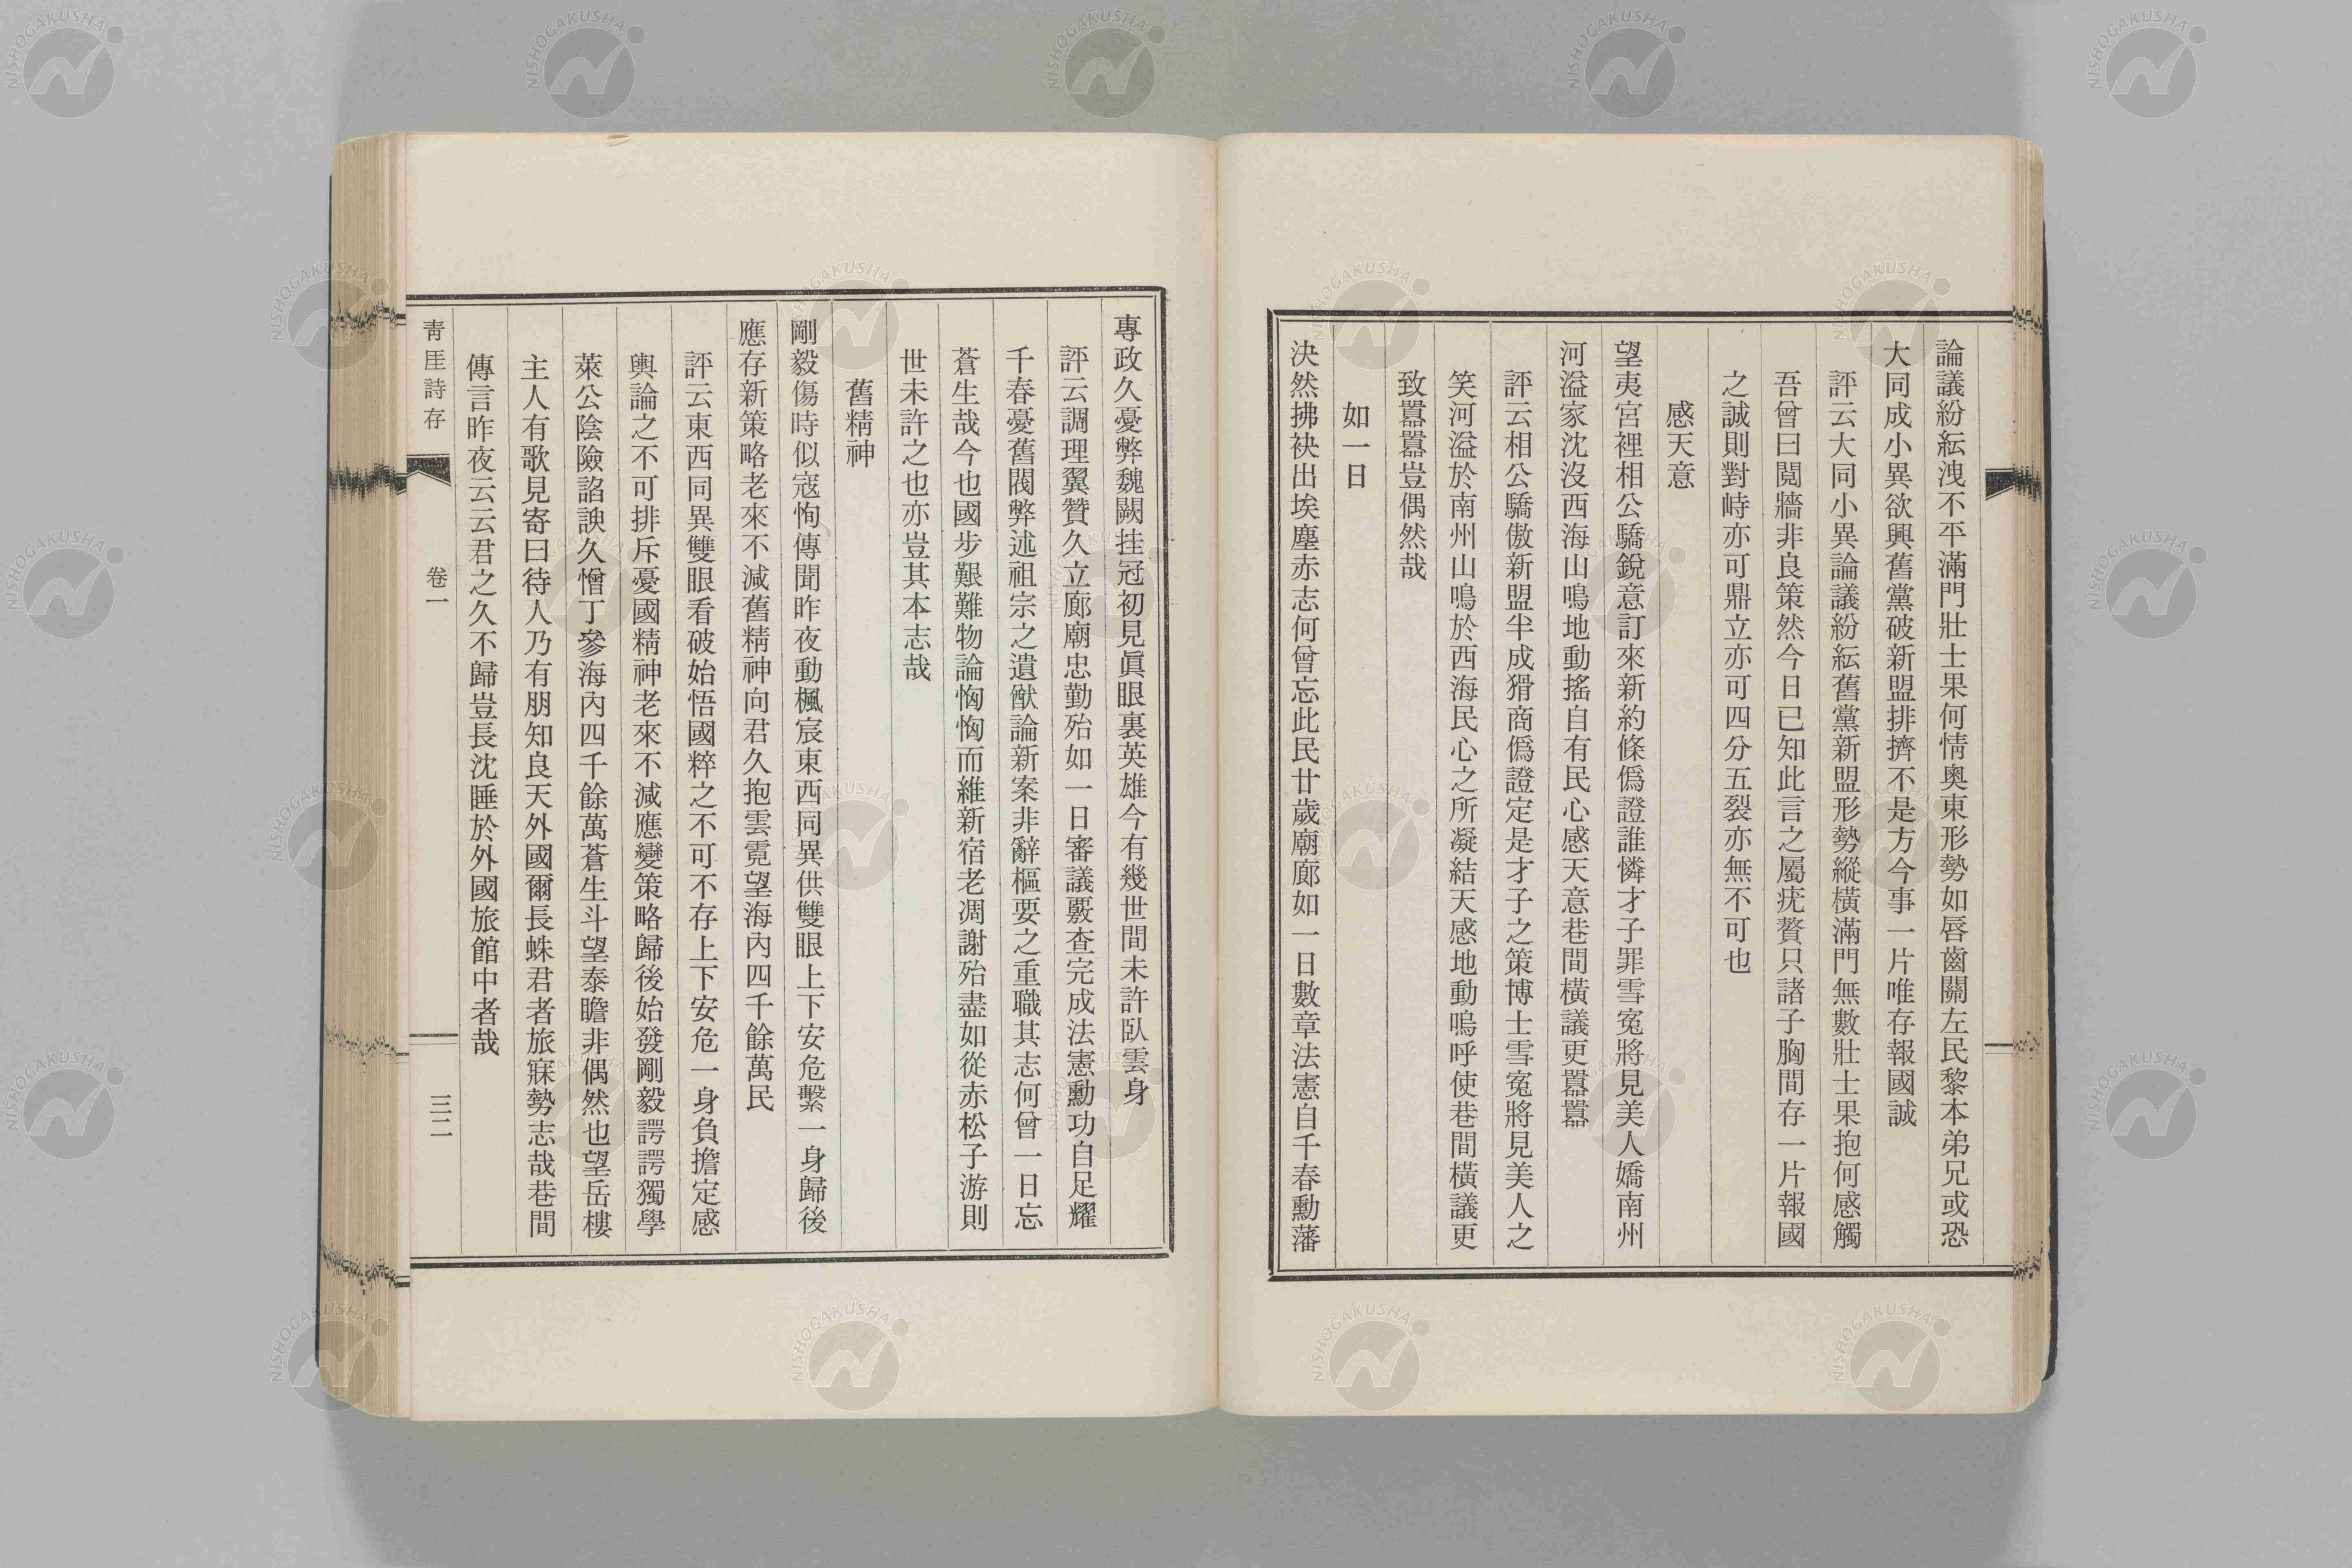 論議紛紜洩不平滿門壯士果何情奧東形勢如唇齒關左民黎本弟兄或恐
大同成小異欲興舊黨破新盟排擠不是方今事一片唯存報國誠
評云大同小異論議紛紜舊黨新盟形勢縱橫滿門無數壯士果抱何感觸
吾曾曰鬩牆非良策然今日已知此言之屬疣贅只諸子胸間存一片報國
之誠則對峙亦可鼎立亦可四分五裂亦無不可也
感天意
望夷宮裡相公驕銳意訂來新約條僞證誰憐才子罪雪冤將見美人嬌南州
河溢家沈沒西海山鳴地動搖自有民心感天意巷間橫議更囂囂
評云相公驕傲新盟半成猾商僞證定是才子之策博士雪冤將見美人之
笑河溢於南州山鳴於西海民心之所凝結天感地動嗚呼使巷間橫議更
致囂囂豈偶然哉
如一日
決然拂袂出埃塵赤志何曾忘此民廿歲廟廊如一日數章法憲自千春勳藩
專政久憂弊魏闕挂冠初見眞眼裏英雄今有幾世間未許臥雲身
評云調理翼贊久立廊廟忠勤殆如一日審議覈查完成法憲勳功自足耀
千春憂舊閥弊述祖宗之遺猷論新案非辭樞要之重職其志何曾一日忘
蒼生哉今也國步艱難物論恟恟而維新宿老凋謝殆盡如從赤松子游則
世未許之也亦豈其本志哉
舊精神
剛毅傷時似寇恂傳聞昨夜動楓宸東西同異供雙眼上下安危繫一身歸後
應存新策略老來不減舊精神向君久抱雲霓望海內四千餘萬民
評云東西同異雙眼看破始悟國粹之不可不存上下安危一身負擔定感
輿論之不可排斥憂國精神老來不減應變策略歸後始發剛毅諤諤獨學
萊公陰險諂諛久憎丁參海內四千餘萬蒼生斗望泰瞻非偶然也望岳樓
主人有歌見寄曰待人乃有朋知良天外國爾長蛛君者旅寐勢志哉巷間
傳言昨夜云云君之久不歸豈長沈睡於外國旅館中者哉
靑厓詩存
卷一
三二
NISHOGAKUSHA